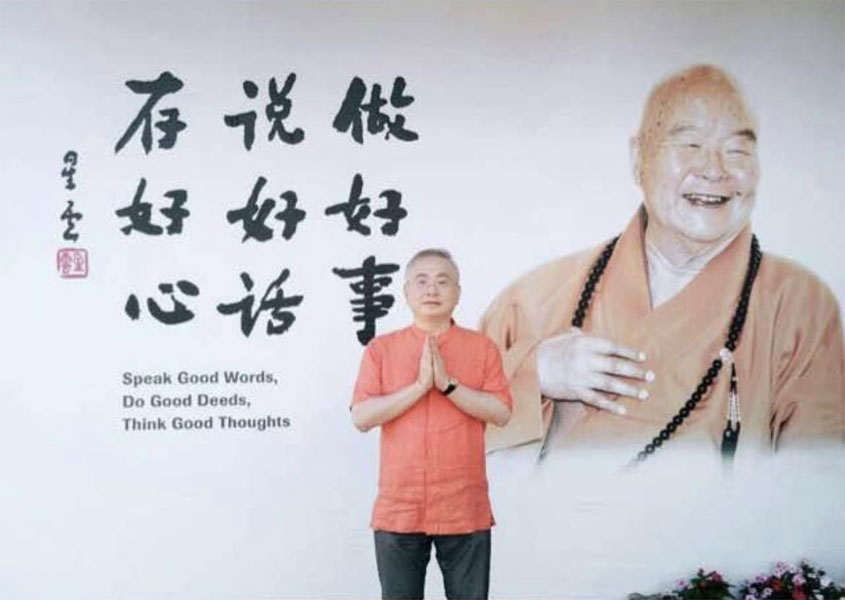 做好事
说好话
存好心
星云
Speak Good Words,
Do Good Deeds,
Think Good Thoughts